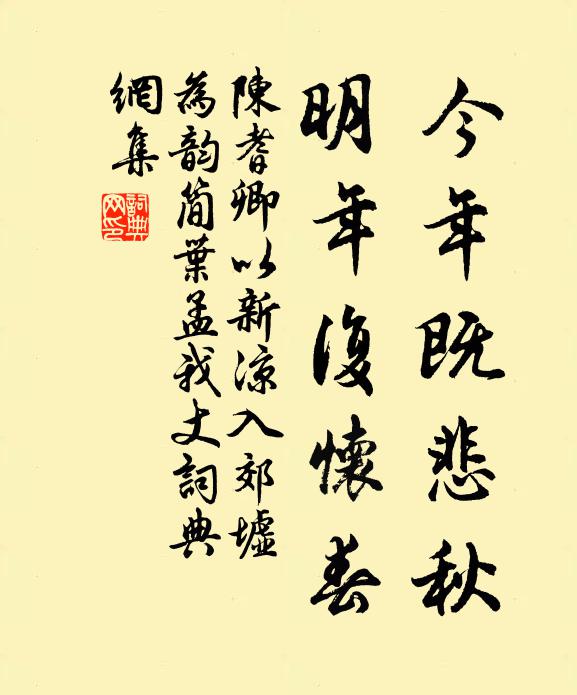 今年既悲秋
明年復懷春
陳耆卿以新涼入郊墟
為韵簡葉孟我丈詞典
網集
詞典網印